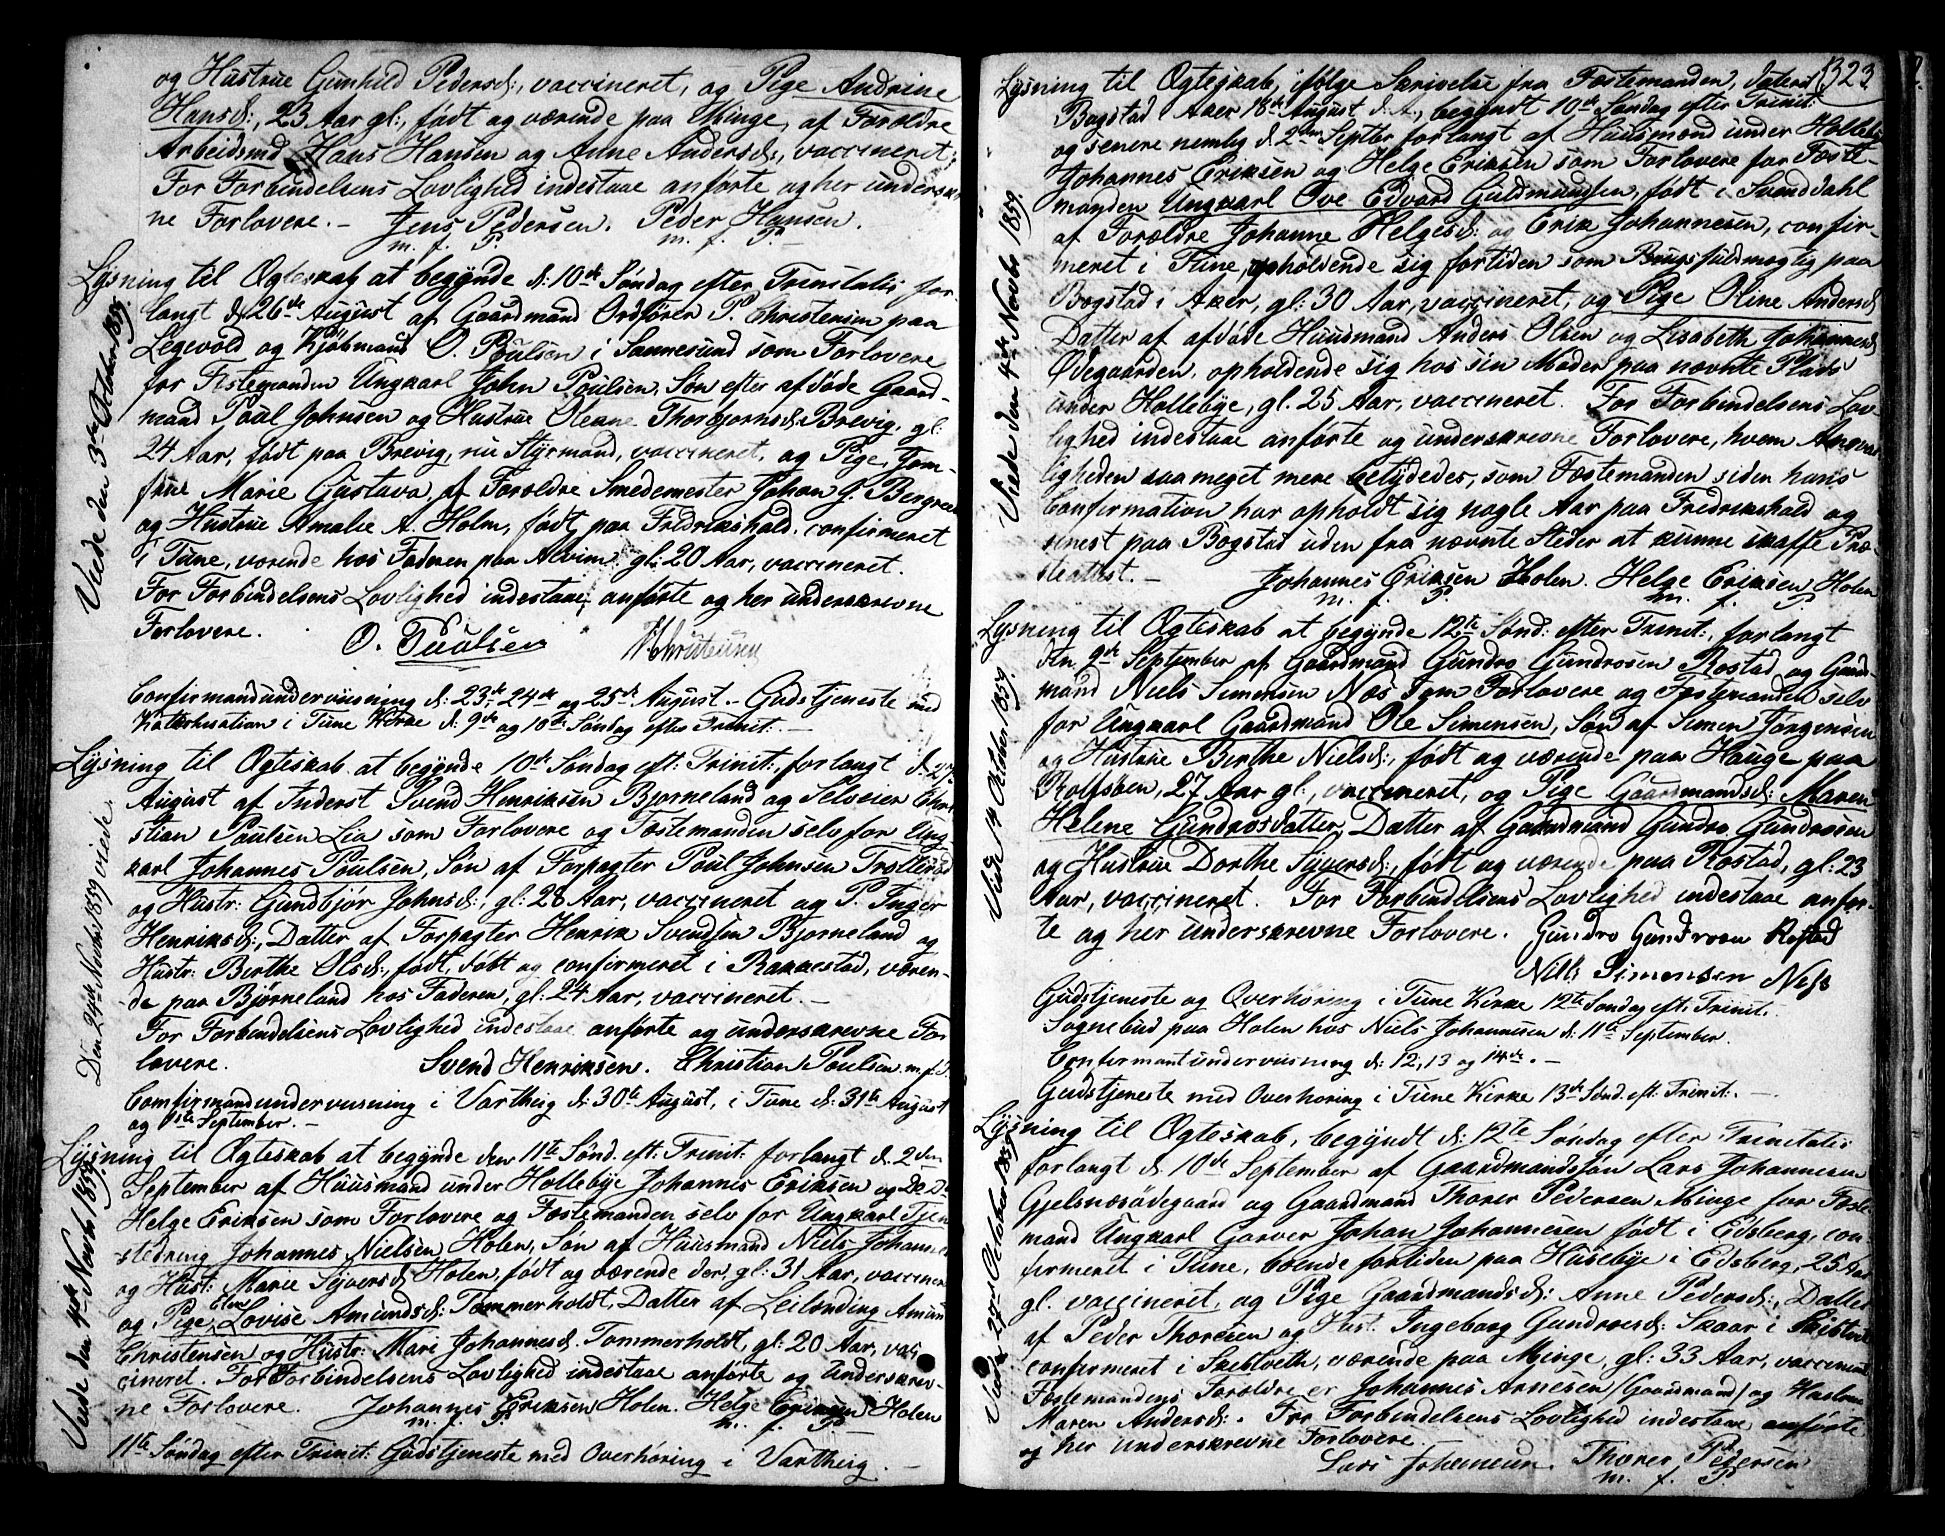 og Hustrue Gunhild Pedersd:, vaccineret, og Pige Andrine
Hansd:, 23 Aar gl:, født og værende paa Minge, af Forældre
Arbeidsmd Hans Hansen og Anne Andersd:, vaccineret:
For Forbindelsens Lovlighed indestaae anførte og her underskrev-
ne Forlovere. – Jens Pedersen. Peder Hansen.
m. f. P. m. f. P. –
Lysning til Ægteskab at begynde d: 10de Søndag efter Trinitatis for-
langt d. 26de August af Gaardmand Ordfører P. Christensen paa
Legevold og Kjøbmand O. Poulsen i Sannesund som Forlovere
for Festemanden Ungkarl John Poulsen, Søn efter afdøde Gaard-
mand Poul Johnsen og Hustrue Oleane Thorbjørnsd: Brevig, gl:
24 Aar, født paa Brevig, nu Styrmand, vaccineret, og Pige, Jom-
frue Marie Gustava, af Forældre Smedemester Johan G. Bergreen
og Hustrue Amalie A. Holm, født paa Fredrikshald, confirmeret
i Tune, værende hos Faderen paa Alvim, gl: 20 Aar, vaccineret.
For Forbindelsens Lovlighed indestaae anførte og her underskrevne
Forlovere. O. Poulsen PChristensen
Viede den 3die October 1859.
Confirmandundervisning d: 23de 24de og 25de August. – Gudstjeneste med
Katechisation i Tune Kirke d: 9de og 10de Søndag efter Trinit: –
Lysning til Ægteskab at begynde 10de Søndag eft: Trinit:, forlangt d. 27de
August af Inderst Svend Henriksen Bjørneland og Selveier Chri-
stian Poulsen Lia som Forlovere og Fæstemanden selv for Ung-
karl Johannes Poulsen, Søn af Forpagter Poul Johnsen Trollerud
og Hustr: Gundbjør Johnsd:, gl: 28 Aar, vaccineret og P. Inger
Henriksd:, Datter af Forpagter Henrik Svendsen Bjørneland og
Hustr: Berthe Olsd:, født, døbt og confirmeret i Rakkestad, væren-
de paa Bjørneland hos Faderen, gl: 24 Aar, vaccineret. –
For Forbindelsens Lovlighed indestaae anførte og underskrevne For-
lovere. Svend Henriksen. Christian Poulsen m. f. P.
Den 24de Novbr 1859 viede.
Confirmandundervisning i Varteig d: 30te August, i Tune d: 31te August
og 1ste September. –
Lysning til Ægteskab at begynde den 11te Sønd. eft: Trinit: forlangt d. 2den
September af Huusmand under Hollebye Johannes Eriksen og
Helge Eriksen som Forlovere og Fæstemanden selv for Ungkarl Tjen-
stedreng Johannes Nielsen Holen, Søn af Huusmand Niels Johannes
og Hust: Marie Syversd: Holen, født og værende der, gl: 31 Aar, vaccineret
og Pige Elne Lovise Amundsd: Tømmerholdt, Datter af Leilending Amun
Christensen og Hustr: Mari Johannesd: Tømmerholdt, gl: 20 Aar, vac-
cineret. For Forbindelsens Lovlighed indestaae anførte og underskrev-
ne Forlovere. Johannes Eriksen Holen. Helge Eriksen Holen
m. f. P. m. f. P.
Viede den 4de Novbr. 1859.
11te Søndag efter Trinit: Gudstjeneste med Overhøring i Varteig. –
323
Lysning til Ægteskab, ifølge Skrivelse fra Fæstemanden, dateret
Bogstad i Aker 18de August d. A., begyndt 10de Søndag efter Trinit:
og senere nemlig d. 2den Septbr forlangt af Huusmænd under Hollebye
Johannes Eriksen og Helge Eriksen som Forlovere for Fæste-
manden Ungkarl Ove Edvard Guldmandsen, født i Svenddahl
af Forældre Johanne Helgesd: og Erik Johannesen, confir-
meret i Tune, opholdende sig fortiden som Brugsfuldmægtig paa
Bogstad i Aker, gl: 30 Aar, vaccineret, og Pige Oline Andersd:
Datter af afdøde Huusmand Anders Olsen og Lisabeth Johannesd:
Ødegaarden, opholdende sig hos sin Moder paa nævnte Plads
under Hollebye, gl. 25 Aar, vaccineret. For Forbindelsens Lov-
lighed indestaae anførte og underskrevne Forlovere, hvem Ansvar-
ligheden saameget mere betydedes, som Fæstemanden siden hans
Confirmation har opholdt sig nogle Aar paa Fredrikshald og
senest paa Bogstad uden fra nævnte Steder at kunne skaffe Præ-
steattest. – Johannes Eriksen Holen. Helge Eriksen Holen
m. f. P. m. f. P.
Viede den 4de Novbr 1859
Lysning til Ægteskab at begynde 12te Sønd: efter Trinit:, forlangt
den 9de September af Gaardmand Gundro Gundrosen Rostad og Gaard-
mand Niels Simensen Næs som Forlovere og Fæstemanden selv
for Ungkarl Gaardmand Ole Simensen, Søn af Simen Jørgensen
og Hustrue Berthe Nielsd:, født og værende paa Hauge paa
Rolfsøen, 27 Aar gl:, vaccineret, og Pige Gaardmandsd: Maren
Helene Gundrosdatter, Datter af Gaardmand Gundro Gundrosen
og Hustrue Dorthe Syversd:, født og værende paa Rostad, gl: 23
Aar, vaccineret. For Forbindelsens Lovlighed indestaae anfør-
te og her underskrevne Forlovere. Gundro Gundrosen Rostad
Nils Simensen Næss
Viede 14 October 1859.
Gudstjeneste og Overhøring i Tune Kirke 12te Søndag eft: Trinit:
Sognebud paa Holen hos Niels Johannesen d: 11te September.
Confirmantundervisning d: 12, 13 og 14de. –
Gudstjeneste med Overhøring i Tune Kirke 13de Sønd. eft: Trinit: –
Lysning til Ægteskab, begyndt d: 12te Søndag efter Trinitatis
forlangt d. 10de September af Gaardmandssøn Lars Johannesen
Gjelsnesødegaard og Gaardmand Thorer Pedersen Minge for Fæste-
mand Ungkarl Garver Johan Johannesen født i Edsberg, con-
firmeret i Tune, boende fortiden paa Huseby i Edsberg, 25 Aar
gl. vaccineret, og Pige Gaardmandsd: Anne Pedersd:, Datter
af Peder Thoresen og Hust. Ingeborg Gundrosd: Skaar i
confirmeret i Skibtveth, værende paa Minge, gl: 33 Aar, vaccineret
Fæstemandens Forældre er Johannes Arnesen (Gaardmand) og Hustrue
Maren Andersd:. For Forbindelsens Lovlighed indestaae anførte
og her underskrevne Forlovere.
Lars Johannesen. Thorer Pedersen
m. f. P.
Viede 27de October 1859